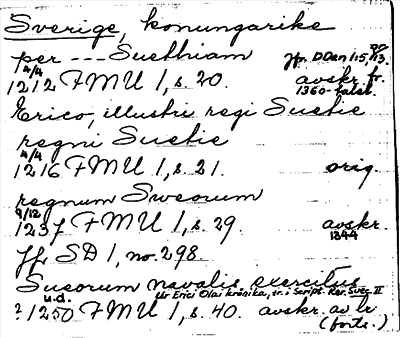 Sverige, konungarike
per --- Suethiam
4/4
1212 FMU 1, s. 20. avskr. fr.
1360-talet.
Erico, illustri regi Suetie
regni Suetie
4/4
1216 FMU 1, s. 21. orig.
regnum Sweorum
9/12
1237 FMU 1, s. 29. avskr.
1344
Jfr SD 1, no. 298.
Sueorum navalis exercitus
ur Erici Olai krönika, tr. i Script. Rer. Svec. II
u.d.
? 1250 FMU 1, s. 40. avskr. av
(forts.)